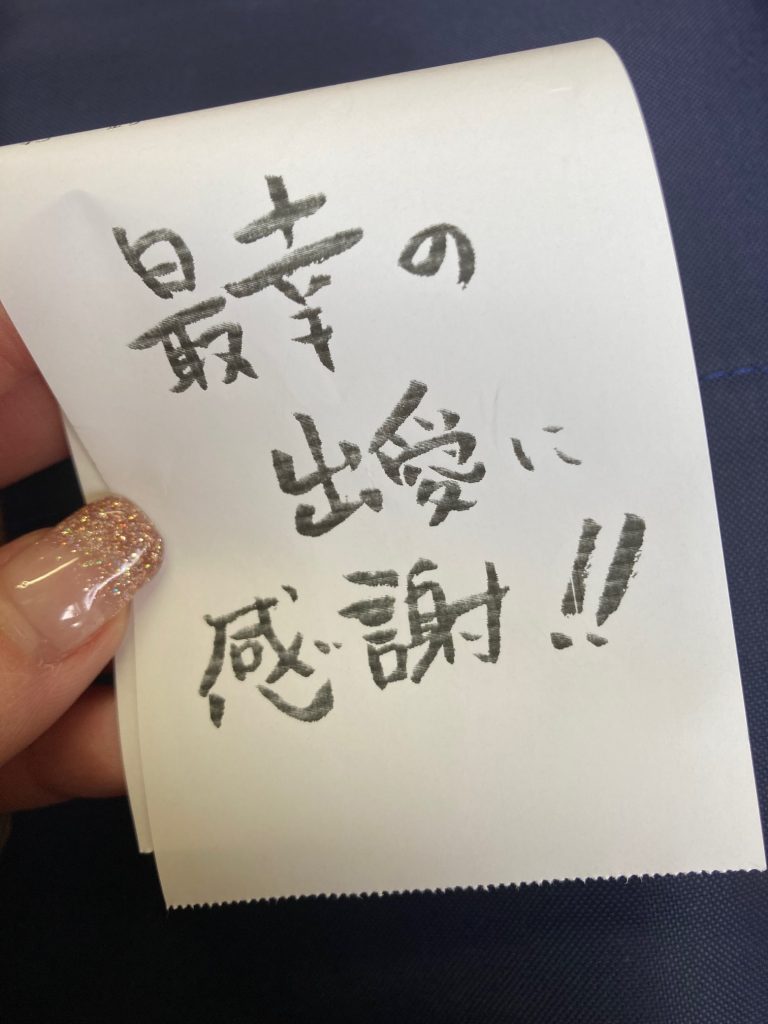 最幸の
出愛に
感謝!!